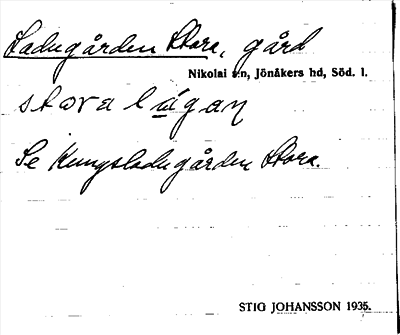 Ladugården Stora, gård
Nikolai s:n, Jönåkers hd, Söd. l.
stora lágan
Se Kungsladugården Stora.
STIG JOHANSSON 1935.